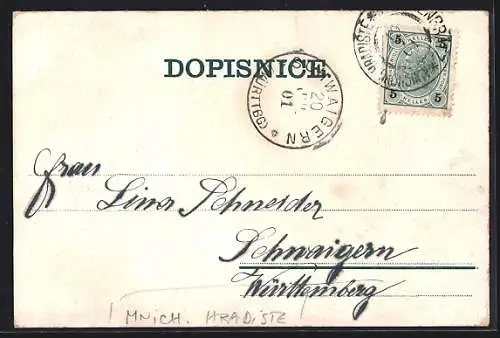 DOPISNICE.
SCHWAIGERN
20
01
(WÜRTTBG)
HRADIŠTĚ
5 5
HELLER
5 5
Frau
Lina Schneider
Schwaigern
Württemberg
MNICH. HRADISTE